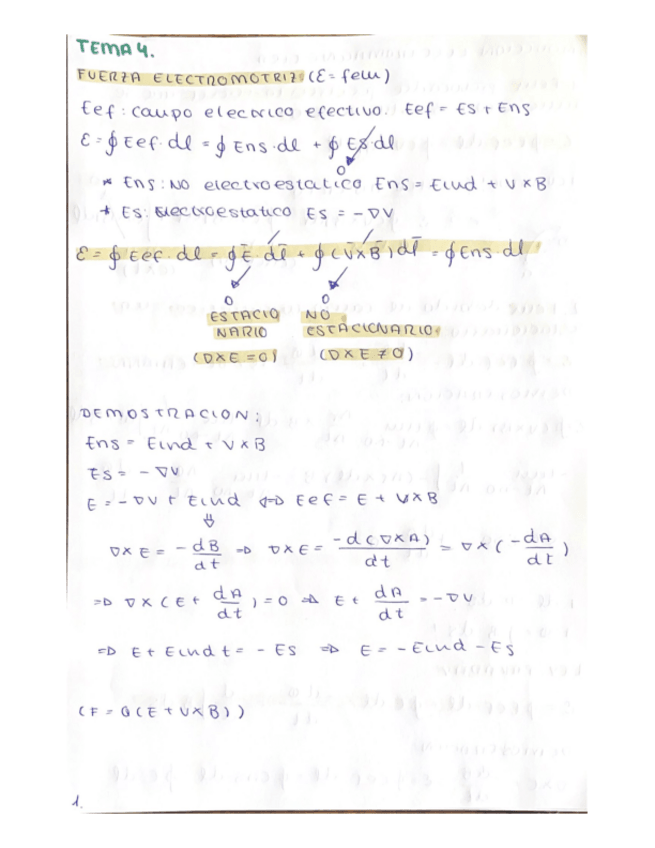 TEMA 4.
FUERZA ELECTROMOTRIZ: (Ɛ = fem)
Eef: campo electrico efectivo. Eef = Es + Ens
Ɛ = ∮ Eef · dl = ∮ Ens · dl + ∮ Es · dl
0
* Ens: NO electroestatico Ens = Eind + V × B
* Es: Electroestatico Es = -∇V
Ɛ = ∮ Eef · dl = ∮ Ē · dl̄ + ∮ (V̄ × B̄) dl̄ = ∮ Ens · dl
0 0
ESTACIO NO
NARIO ESTACIONARIO
(∇×E = 0) (∇×E ≠ 0)
DEMOSTRACION:
Ens = Eind + V × B
Es = -∇V
E = -∇V + Eind ⇔ Eef = E + V × B
⇓
∇×E = -dB/dt ⇒ ∇×E = -d(∇×A)/dt = ∇×(-dA/dt)
⇒ ∇×(E + dA/dt) = 0 ⇒ E + dA/dt = -∇V
⇒ E + Eind t = -Es ⇒ E = -Eind - Es
(F = Q(E + V × B))
1.